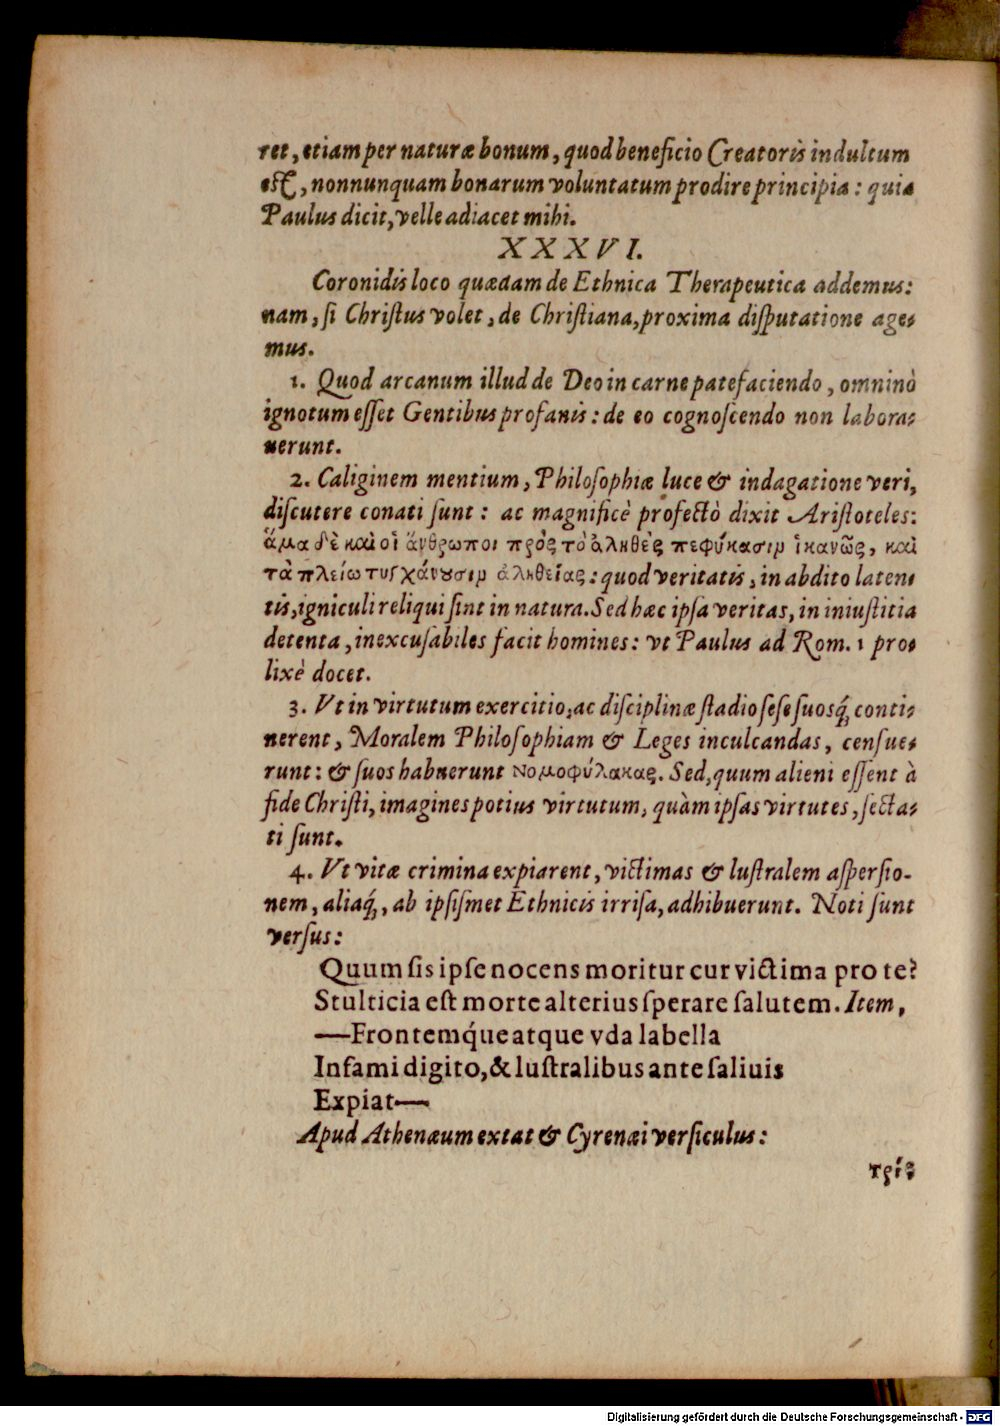 ret, etiam per naturæ bonum, quod beneficio Creatoris indultum
est, nonnunquam bonarum voluntatum prodire principia: quia
Paulus dicit, velle adiacet mihi.
XXXVI.
Coronidis loco quædam de Ethnica Therapeutica addemus:
nam, si Christus volet, de Christiana, proxima disputatione age-
mus.
1. Quod arcanum illud de Deo in carne patefaciendo, omninò
ignotum esset Gentibus profanis: de eo cognoscendo non labora-
uerunt.
2. Caliginem mentium, Philosophiæ luce & indagatione veri,
discutere conati sunt: ac magnificè profectò dixit Aristoteles:
ἅμα δὲ καὶ οἱ ἄνθρωποι πρὸς τὸ ἀληθὲς πεφύκασιμ ἱκανῶς, καὶ
τὰ πλείω τυγχάνουσιμ ἀληθείας: quod veritatis, in abdito laten-
tis, igniculi reliqui sint in natura. Sed hæc ipsa veritas, in iniustitia
detenta, inexcusabiles facit homines: vt Paulus ad Rom. 1 pro-
lixè docet.
3. Vt in virtutum exercitio, ac disciplinæ stadio sese suosq́; conti-
nerent, Moralem Philosophiam & Leges inculcandas, censue-
runt: & suos habuerunt νομοφύλακας. Sed, quum alieni essent à
fide Christi, imagines potius virtutum, quàm ipsas virtutes, secta-
ti sunt.
4. Vt vitæ crimina expiarent, victimas & lustralem aspersio-
nem, aliaq́;, ab ipsismet Ethnicis irrisa, adhibuerunt. Noti sunt
versus:
Quum sis ipse nocens moritur cur victima pro te?
Stulticia est morte alterius sperare salutem. Item,
—Frontemq́ue atque vda labella
Infami digito, & lustralibus ante saliuis
Expiat—
Apud Athenæum extat & Cyrenæi versiculus:
τρίς
Digitalisierung gefördert durch die Deutsche Forschungsgemeinschaft - DFG